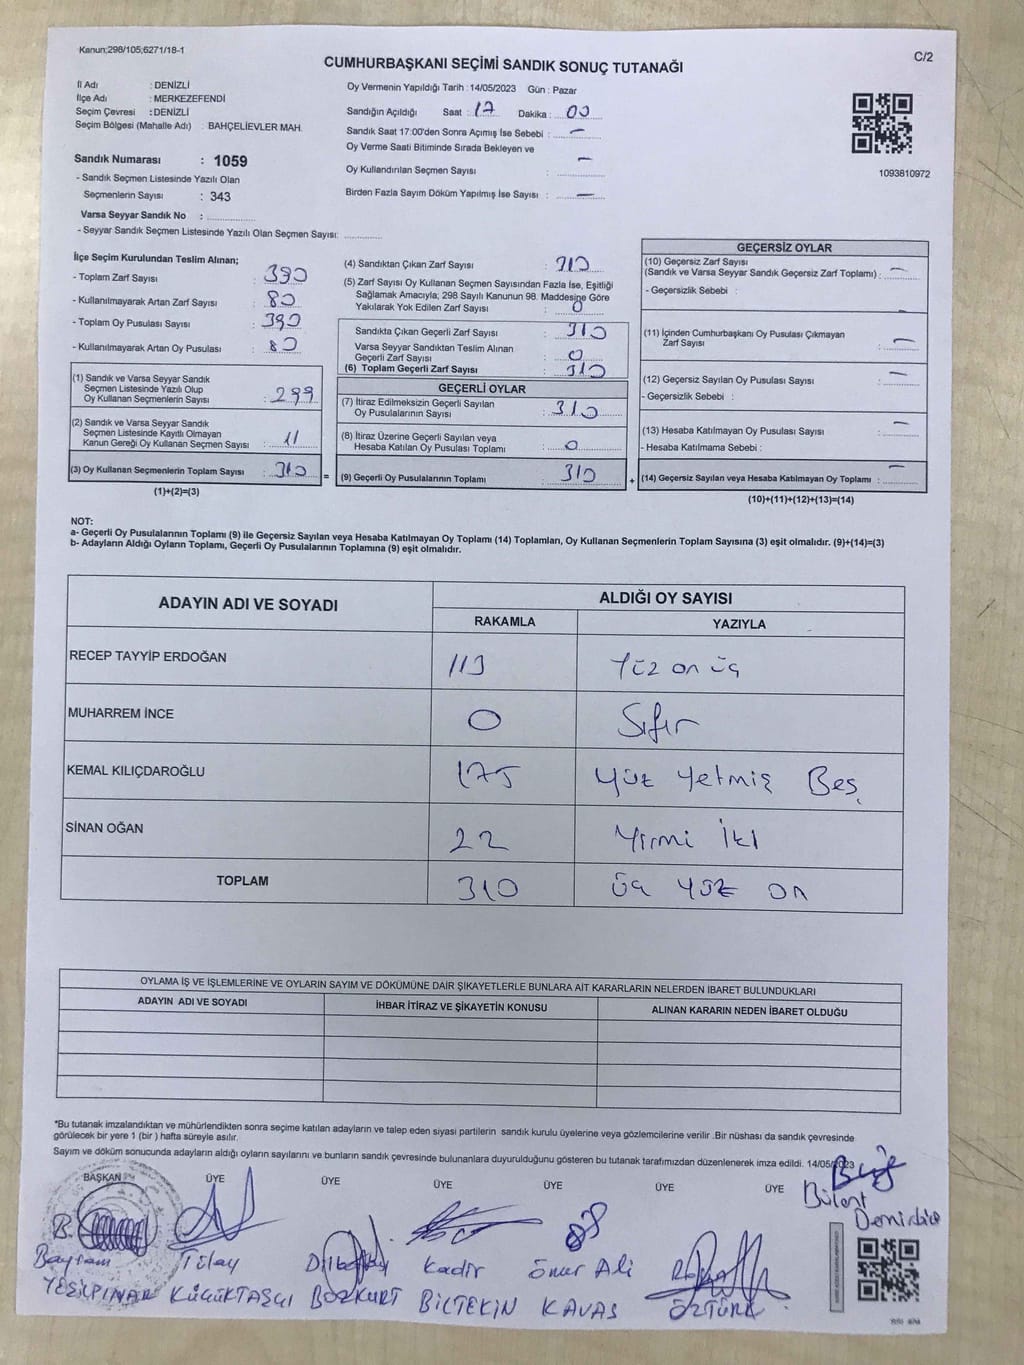 Kanun;298/105;6271/18-1
C/2
CUMHURBAŞKANI SEÇİMİ SANDIK SONUÇ TUTANAĞI
İl Adı : DENİZLİ
İlçe Adı : MERKEZEFENDİ
Seçim Çevresi : DENİZLİ
Seçim Bölgesi (Mahalle Adı) : BAHÇELİEVLER MAH.
Sandık Numarası : 1059
- Sandık Seçmen Listesinde Yazılı Olan
Seçmenlerin Sayısı : 343
Varsa Seyyar Sandık No :
- Seyyar Sandık Seçmen Listesinde Yazılı Olan Seçmen Sayısı:
Oy Vermenin Yapıldığı Tarih : 14/05/2023 Gün : Pazar
Sandığın Açıldığı Saat : 17 Dakika : 00
Sandık Saat 17:00'den Sonra Açımış İse Sebebi : –
Oy Verme Saati Bitiminde Sırada Bekleyen ve
Oy Kullandırılan Seçmen Sayısı : –
Birden Fazla Sayım Döküm Yapılmış İse Sayısı : –
1093810972
İlçe Seçim Kurulundan Teslim Alınan;
- Toplam Zarf Sayısı : 390
- Kullanılmayarak Artan Zarf Sayısı : 80
- Toplam Oy Pusulası Sayısı : 390
- Kullanılmayarak Artan Oy Pusulası : 80
(1) Sandık ve Varsa Seyyar Sandık
Seçmen Listesinde Yazılı Olup
Oy Kullanan Seçmenlerin Sayısı : 299
(2) Sandık ve Varsa Seyyar Sandık
Seçmen Listesinde Kayıtlı Olmayan
Kanun Gereği Oy Kullanan Seçmen Sayısı : 11
(3) Oy Kullanan Seçmenlerin Toplam Sayısı : 310
(1)+(2)=(3)
=
(4) Sandıktan Çıkan Zarf Sayısı : 310
(5) Zarf Sayısı Oy Kullanan Seçmen Sayısından Fazla İse, Eşitliği
Sağlamak Amacıyla; 298 Sayılı Kanunun 98. Maddesine Göre
Yakılarak Yok Edilen Zarf Sayısı : 0
Sandıkta Çıkan Geçerli Zarf Sayısı : 310
Varsa Seyyar Sandıktan Teslim Alınan
Geçerli Zarf Sayısı : 0
(6) Toplam Geçerli Zarf Sayısı : 310
GEÇERLİ OYLAR
(7) İtiraz Edilmeksizin Geçerli Sayılan
Oy Pusulalarının Sayısı : 310
(8) İtiraz Üzerine Geçerli Sayılan veya
Hesaba Katılan Oy Pusulası Toplamı : 0
(9) Geçerli Oy Pusulalarının Toplamı : 310
+
GEÇERSİZ OYLAR
(10) Geçersiz Zarf Sayısı
(Sandık ve Varsa Seyyar Sandık Geçersiz Zarf Toplamı) : –
- Geçersizlik Sebebi :
(11) İçinden Cumhurbaşkanı Oy Pusulası Çıkmayan
Zarf Sayısı : –
(12) Geçersiz Sayılan Oy Pusulası Sayısı : –
- Geçersizlik Sebebi :
(13) Hesaba Katılmayan Oy Pusulası Sayısı : –
- Hesaba Katılmama Sebebi :
(14) Geçersiz Sayılan veya Hesaba Katılmayan Oy Toplamı : –
(10)+(11)+(12)+(13)=(14)
NOT:
a- Geçerli Oy Pusulalarının Toplamı (9) ile Geçersiz Sayılan veya Hesaba Katılmayan Oy Toplamı (14) Toplamları, Oy Kullanan Seçmenlerin Toplam Sayısına (3) eşit olmalıdır. (9)+(14)=(3)
b- Adayların Aldığı Oyların Toplamı, Geçerli Oy Pusulalarının Toplamına (9) eşit olmalıdır.
ADAYIN ADI VE SOYADI
ALDIĞI OY SAYISI
RAKAMLA YAZIYLA
RECEP TAYYİP ERDOĞAN 113 Yüz on üç
MUHARREM İNCE 0 Sıfır
KEMAL KILIÇDAROĞLU 175 Yüz Yetmiş Beş
SİNAN OĞAN 22 Yirmi İki
TOPLAM 310 Üç yüz on
OYLAMA İŞ VE İŞLEMLERİNE VE OYLARIN SAYIM VE DÖKÜMÜNE DAİR ŞİKAYETLERLE BUNLARA AİT KARARLARIN NELERDEN İBARET BULUNDUKLARI
ADAYIN ADI VE SOYADI İHBAR İTİRAZ VE ŞİKAYETİN KONUSU ALINAN KARARIN NEDEN İBARET OLDUĞU
*Bu tutanak imzalandıktan ve mühürlendikten sonra seçime katılan adayların ve talep eden siyasi partilerin sandık kurulu üyelerine veya gözlemcilerine verilir .Bir nüshası da sandık çevresinde
görülecek bir yere 1 (bir ) hafta süreyle asılır.
Sayım ve döküm sonucunda adayların aldığı oyların sayılarını ve bunların sandık çevresinde bulunanlara duyurulduğunu gösteren bu tutanak tarafımızdan düzenlenerek imza edildi. 14/05/2023
BAŞKAN ÜYE ÜYE ÜYE ÜYE ÜYE ÜYE
Bülent
Demirbice
B.
Bayram Tülay Dilbe Kadir Ömür Ali
YEŞİLPINAR KÜÇÜKTAŞÇI BOZKURT BİLTEKİN KAVAS ÖZTÜRK